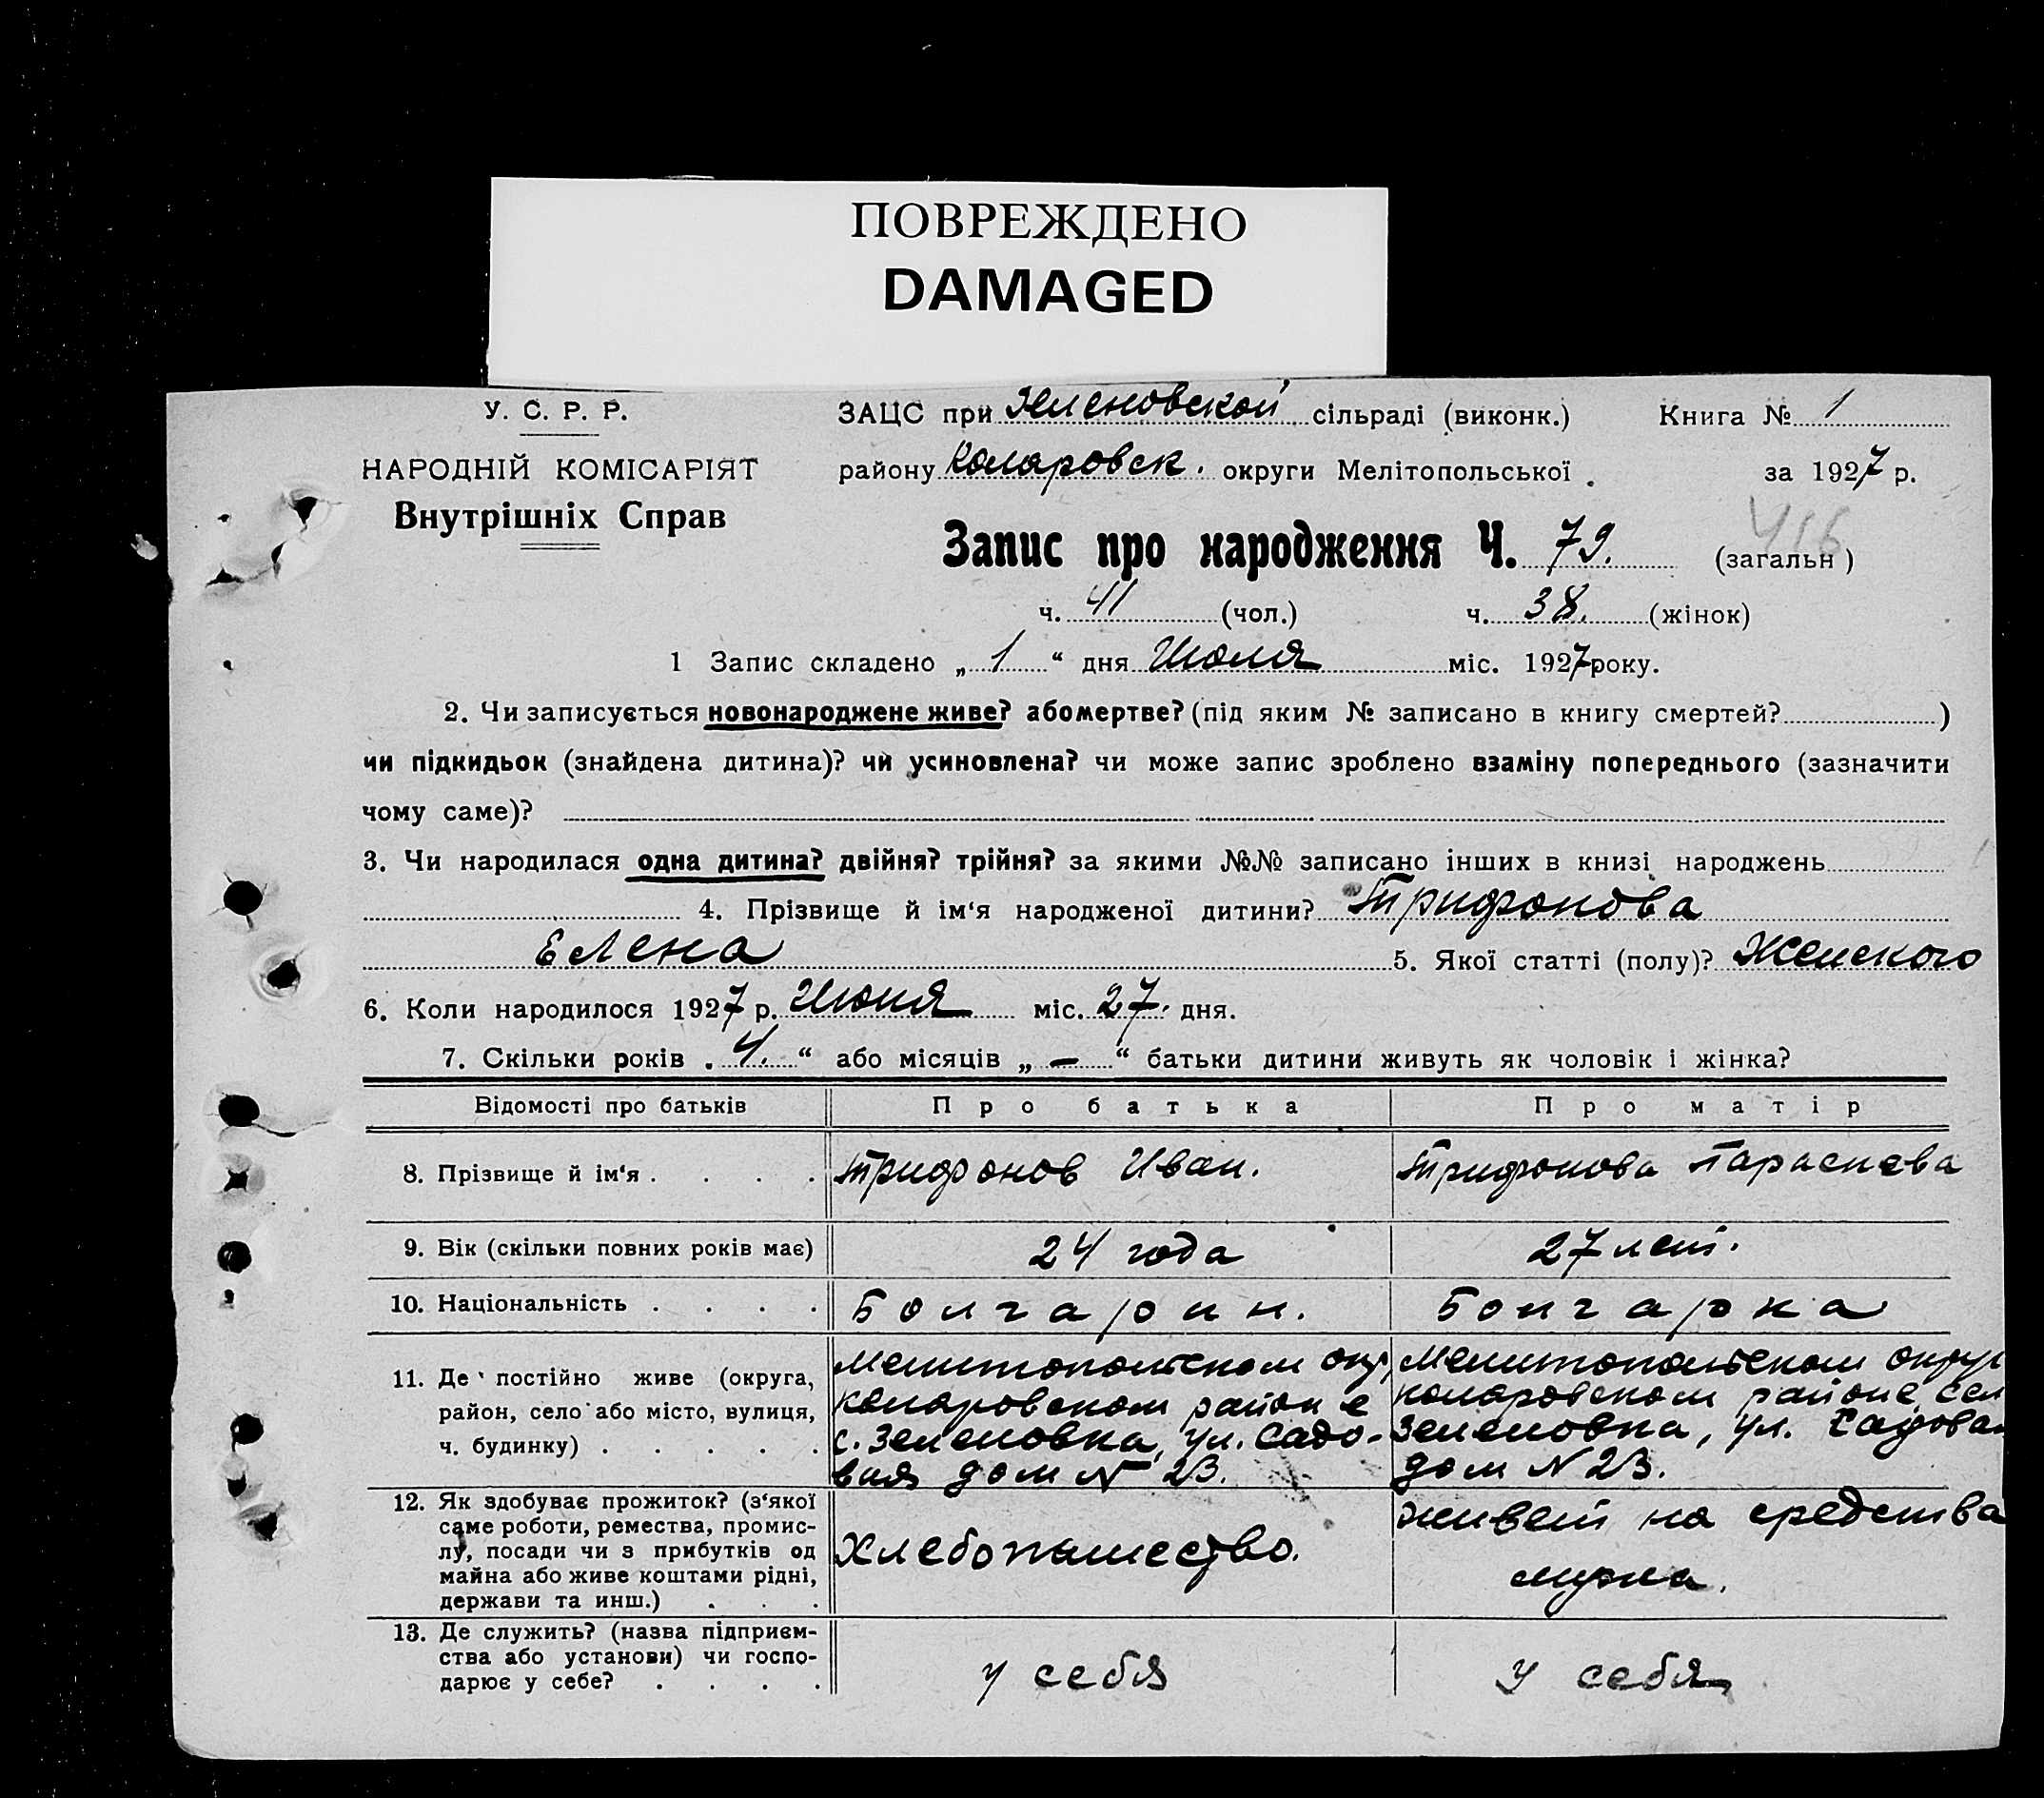 ПОВРЕЖДЕНО
DAMAGED
У. С. Р. Р.
НАРОДНІЙ КОМІСАРІЯТ
Внутрішніх Справ
ЗАЦС при Зеленовской сільраді (виконк.) Книга № 1
району Коларовск. округи Мелітопольської. за 1927 р.
416
Запис про народження Ч. 79. (загальн)
ч. 41 (чол.) ч. 38. (жінок)
1 Запис складено „ 1 “ дня Июля міс. 1927 року.
2. Чи записується новонароджене живе? абомертве? (під яким № записано в книгу смертей? )
чи підкидьок (знайдена дитина)? чи усиновлена? чи може запис зроблено взаміну попереднього (зазначити
чому саме)?
3. Чи народилася одна дитина? двійня? трійня? за якими №№ записано інших в книзі народжень
4. Прізвище й ім‘я народженої дитини? Трифонова
Елена 5. Якої статті (полу)? Женского
6. Коли народилося 1927 р. Июня міс. 27. дня.
7. Скільки років „ 4. “ або місяців „ — “ батьки дитини живуть як чоловік і жінка?
Відомості про батьків Про батька Про матір
8. Прізвище й ім‘я . . . . Трифонов Иван. Трифонова Параснева
9. Вік (скільки повних років має) 24 года 27 лет.
10. Національність . . . . Болгарин. Болгарка
11. Де постійно живе (округа,
район, село або місто, вулиця,
ч. будинку) . . . . .
Мелитопольском окр,
Коларовском районе
с. Зеленовка, ул. Садо-
вая дом № 23.
Мелитопольском округ
Коларовском районе сел
Зеленовка, ул. Садовая
дом № 23.
12. Як здобуває прожиток? (з‘якої
саме роботи, ремества, промис-
лу, посади чи з прибутків од
майна або живе коштами рідні,
держави та инш.) . . .
Хлебопашество.
живет на средства
мужа.
13. Де служить? (назва підприєм-
ства або установи) чи госпо-
дарює у себе? . . . .
у себя
у себя